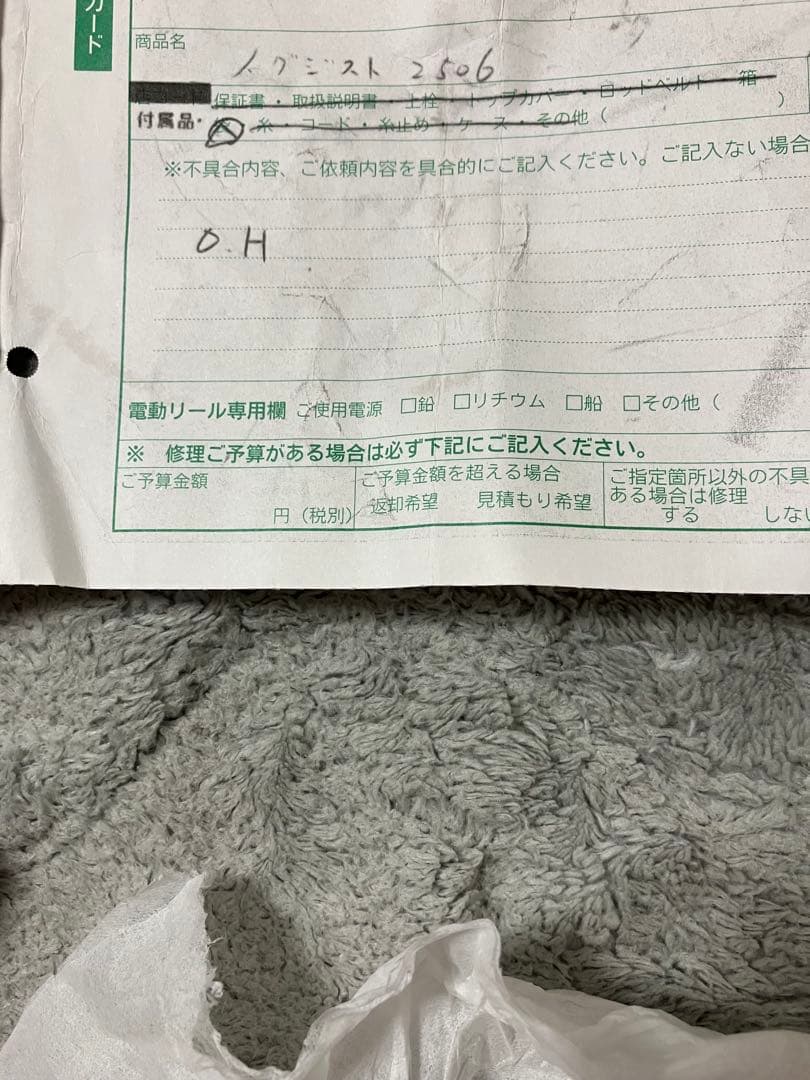 カード
商品名
イグジスト 2506
保証書・取扱説明書・土栓・トップカバー・ロッドベルト・箱
付属品・ 糸・コード・糸止め・ケース・その他（ ）
※不具合内容、ご依頼内容を具合的にご記入ください。ご記入ない場合
O.H
電動リール専用欄 ご使用電源 □鉛 □リチウム □船 □その他（
※ 修理ご予算がある場合は必ず下記にご記入ください。
ご予算金額 ご予算金額を超える場合 ご指定箇所以外の不具
ある場合は修理
円（税別） 返却希望 見積もり希望 する しない